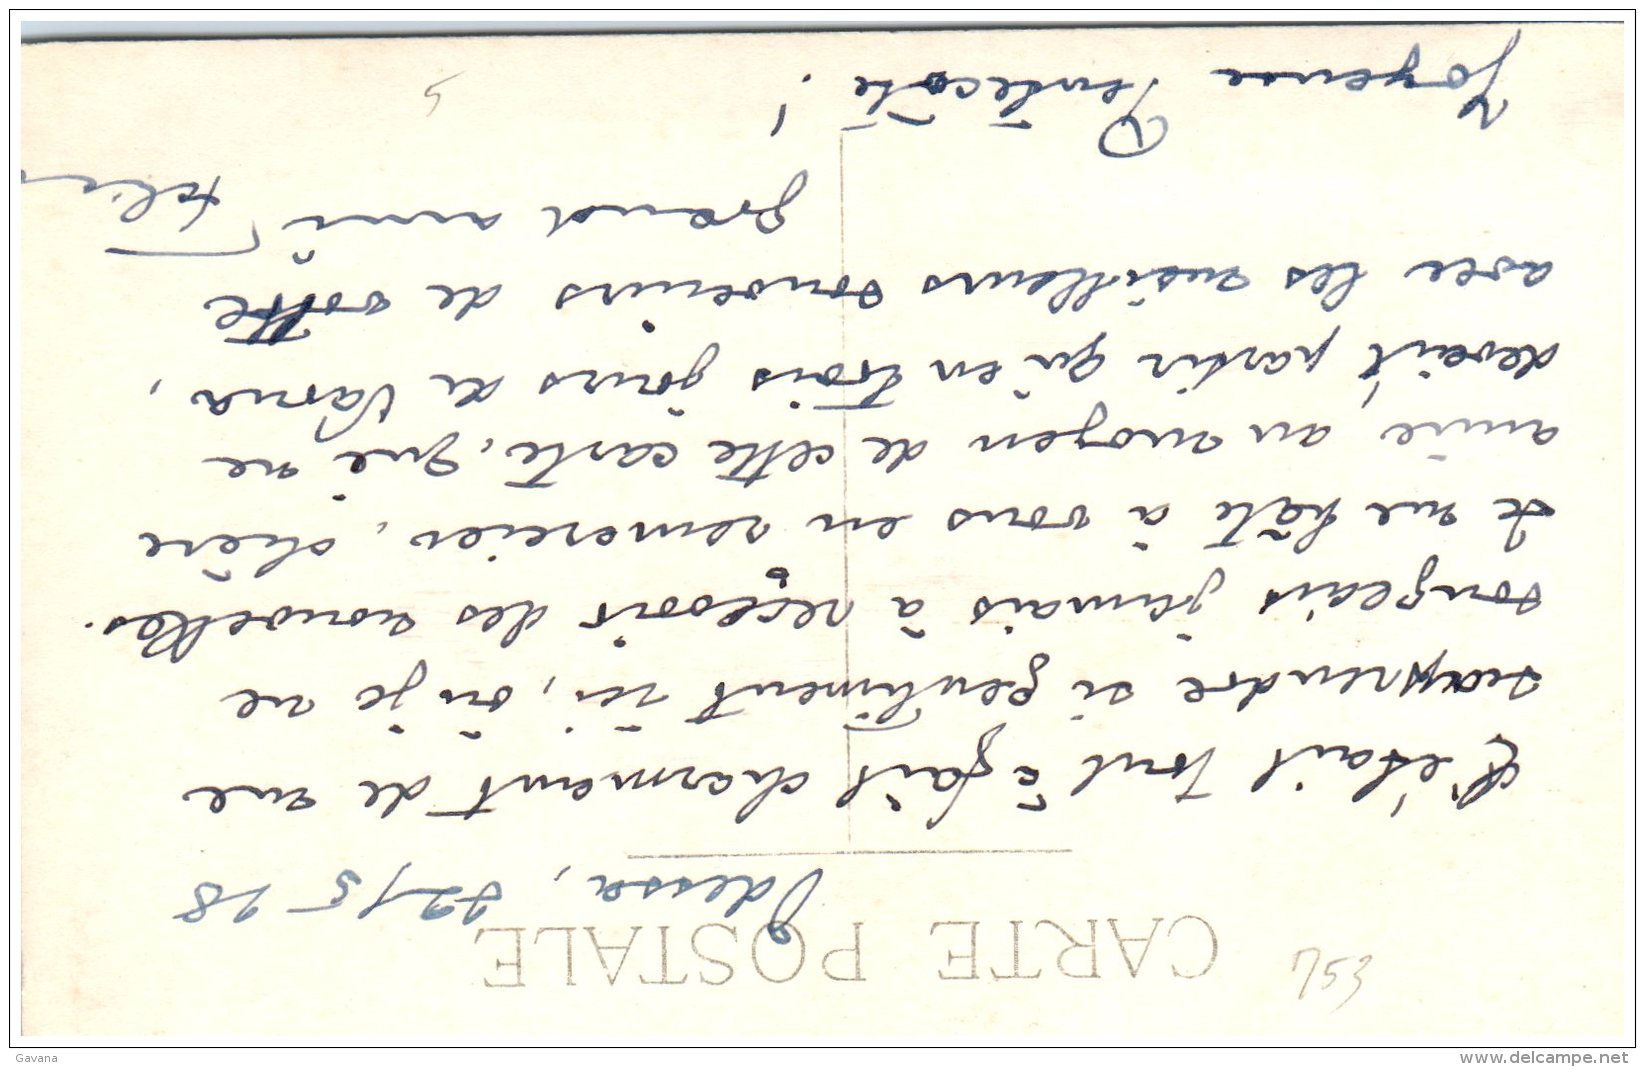 CARTE POSTALE
Odessa, 22/5 18
C'était tout à fait charmant de me
surprendre si gentiment ici, où je ne
songeais jamais à recevoir des nouvelles.
Je me hâte à vous en remercier, chère
amie, au moyen de cette carte, qui ne
devait partir qu'en trois jours de Varna,
avec les meilleurs souvenirs de votre
grand ami
Joyeuse Pentecôte!
5
Gavana
www.delcampe.net